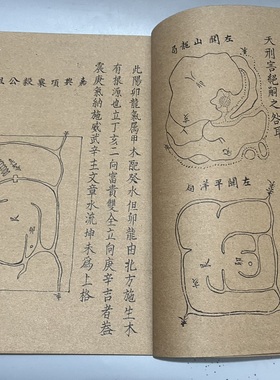 天刑害絕嗣之咎耳
左關山龍局
左關平洋局
此陽卯龍氣屬甲木配癸水但卯龍由北方施生木
有根源也立丁亥二向富貴雙全立向庚辛吉者葢
震庚氣納施威武辛主文章水流坤未爲上格
嘉興項襄毅公祖